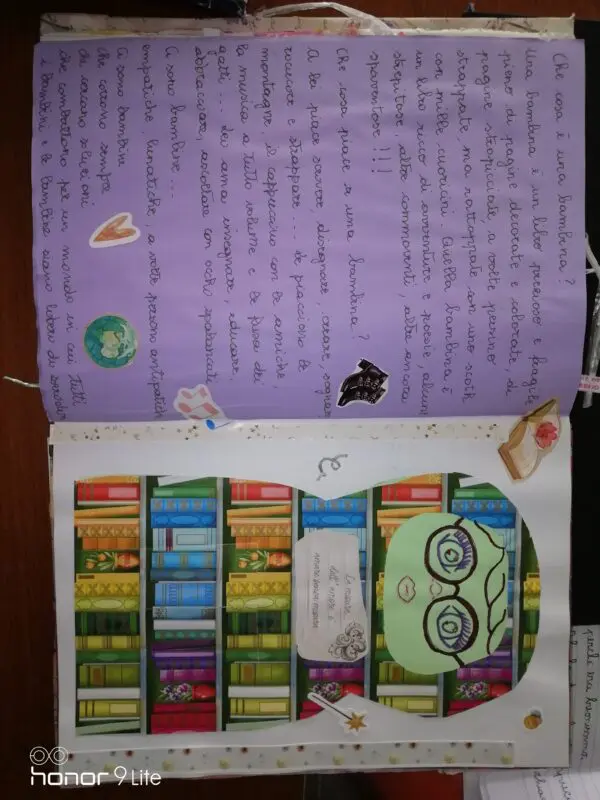 Che cosa è una bambina?
Una bambina è un libro prezioso e fragile
pieno di pagine decorate e colorate, di
pagine stropicciate, a volte persino
strappate ma rattoppate con uno scoth
con mille cuoricini. Quella bambina è
un libro ricco di avventure e poesie alcune
strepitose, altre commoventi, altre ancora
spaventose!!!
Che cosa piace a una bambina?
A lei piace scrivere, disegnare, creare, sognare
e strappare... Le piacciono le
montagne, il cappuccino con le amiche,
la musica a tutto volume e le fusa dei
gatti... Lei ama insegnare, educare,
abbracciare, ascoltare con occhi spalancati
Ci sono bambine...
empatiche, lunatiche, a volte persino antipatiche
Ci sono bambine
che corrono sempre
che cercano soluzioni
che combattono per un mondo in cui tutti
i bambini e le bambine siano liberi di
La
dell'amore e
honor 9 Lite